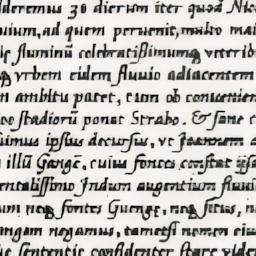 dieremus 30 dierum iter quod Nic
uium, ad quem peruenit, multo mai
fluminū celebratissimumq veterib
vrbem eidem fluuio adiacentem
n ambitu patet, eam ob conuenien
stadiorū ponat Strabo. & sane c
imus ipsius decursus, vt Joannem a
illū Gangē, cuius fontes constat ips
entalissimo Indum augentium fluui
um neq fontes Guenge, neq situs, n
ngam negamus, tametsi nomen eius
sententie confidenter stare vide